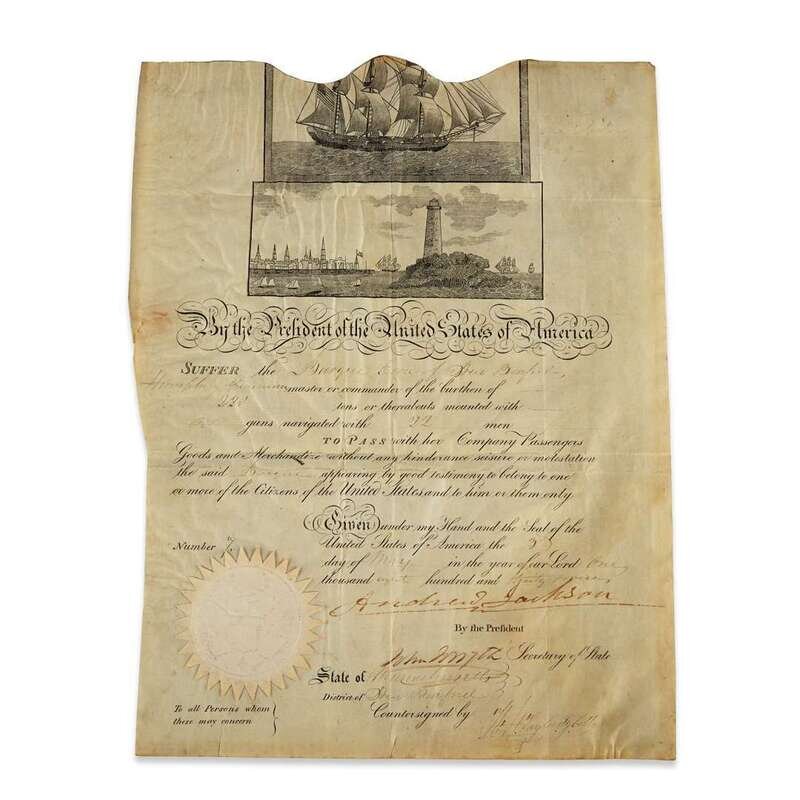 By the President of the United States of America
SUFFER the Barque of New Bedford,
Joseph master or commander of the burthen of
tons or thereabouts mounted with
guns navigated with 22 men
TO PASS with her Company Passengers
Goods and Merchandize without any hinderance seisure or molestation
the said Barque appearing by good testimony to belong to one
or more of the Citizens of the United States and to him or them only
Given under my Hand and the Seal of the
United States of America the
day of May in the year of our Lord One
thousand eight hundred and
Number
Andrew Jackson
By the President
John Forsyth Secretary of State
State of Massachusetts
District of New Bedford
To all Persons whom
these may concern
Countersigned by